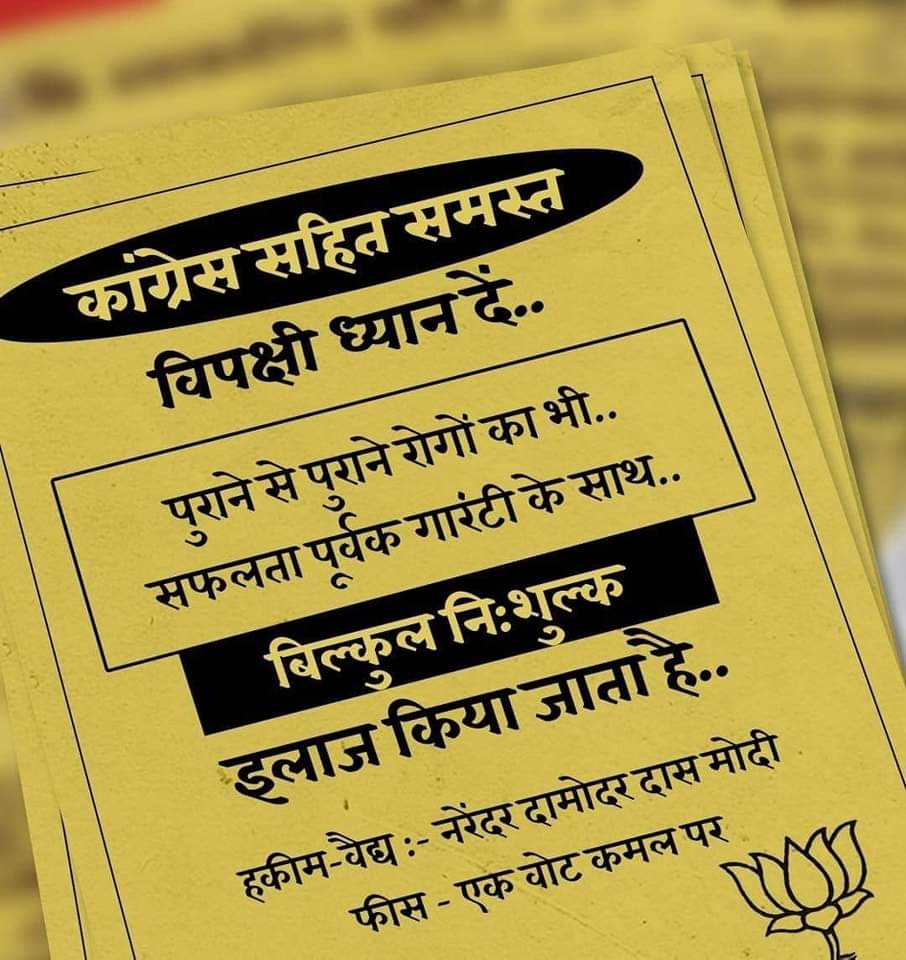 कांग्रेस सहित समस्त
विपक्षी ध्यान दें..
पुराने से पुराने रोगों का भी..
सफलता पूर्वक गारंटी के साथ..
बिल्कुल नि:शुल्क
इलाज किया जाता है..
हकीम-वैद्य :- नरेंदर दामोदर दास मोदी
फीस - एक वोट कमल पर